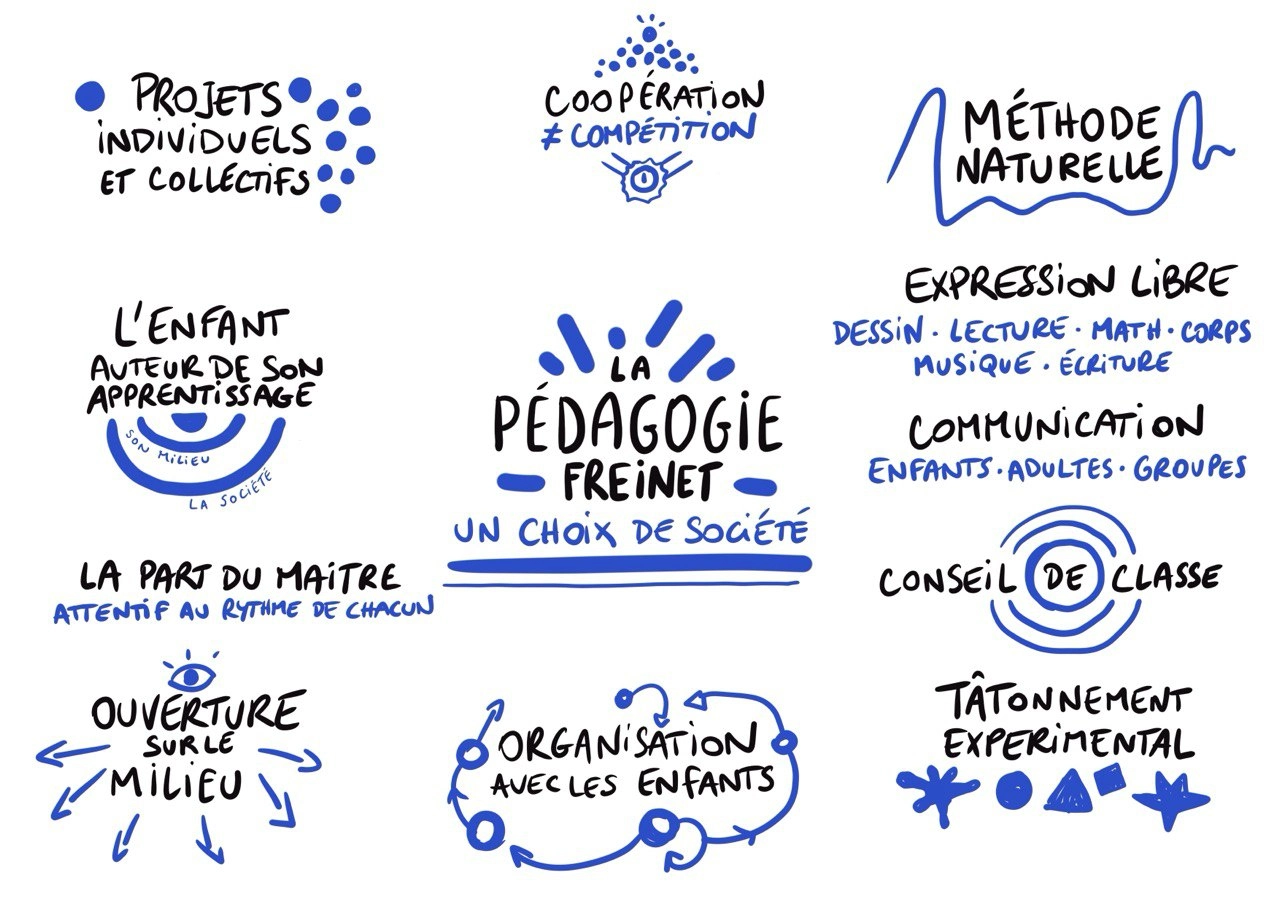 PROJETS
INDIVIDUELS
ET COLLECTIFS
COOPÉRATION
≠ COMPÉTITION
1
MÉTHODE
NATURELLE
L'ENFANT
AUTEUR DE SON
APPRENTISSAGE
SON MILIEU
LA SOCIÉTÉ
LA
PÉDAGOGIE
FREINET
UN CHOIX DE SOCIÉTÉ
EXPRESSION LIBRE
DESSIN · LECTURE · MATH · CORPS
MUSIQUE · ÉCRITURE
COMMUNICATION
ENFANTS · ADULTES · GROUPES
LA PART DU MAITRE
ATTENTIF AU RYTHME DE CHACUN
CONSEIL DE CLASSE
OUVERTURE
SUR LE
MILIEU
ORGANISATION
AVEC LES ENFANTS
TÂTONNEMENT
EXPERIMENTAL